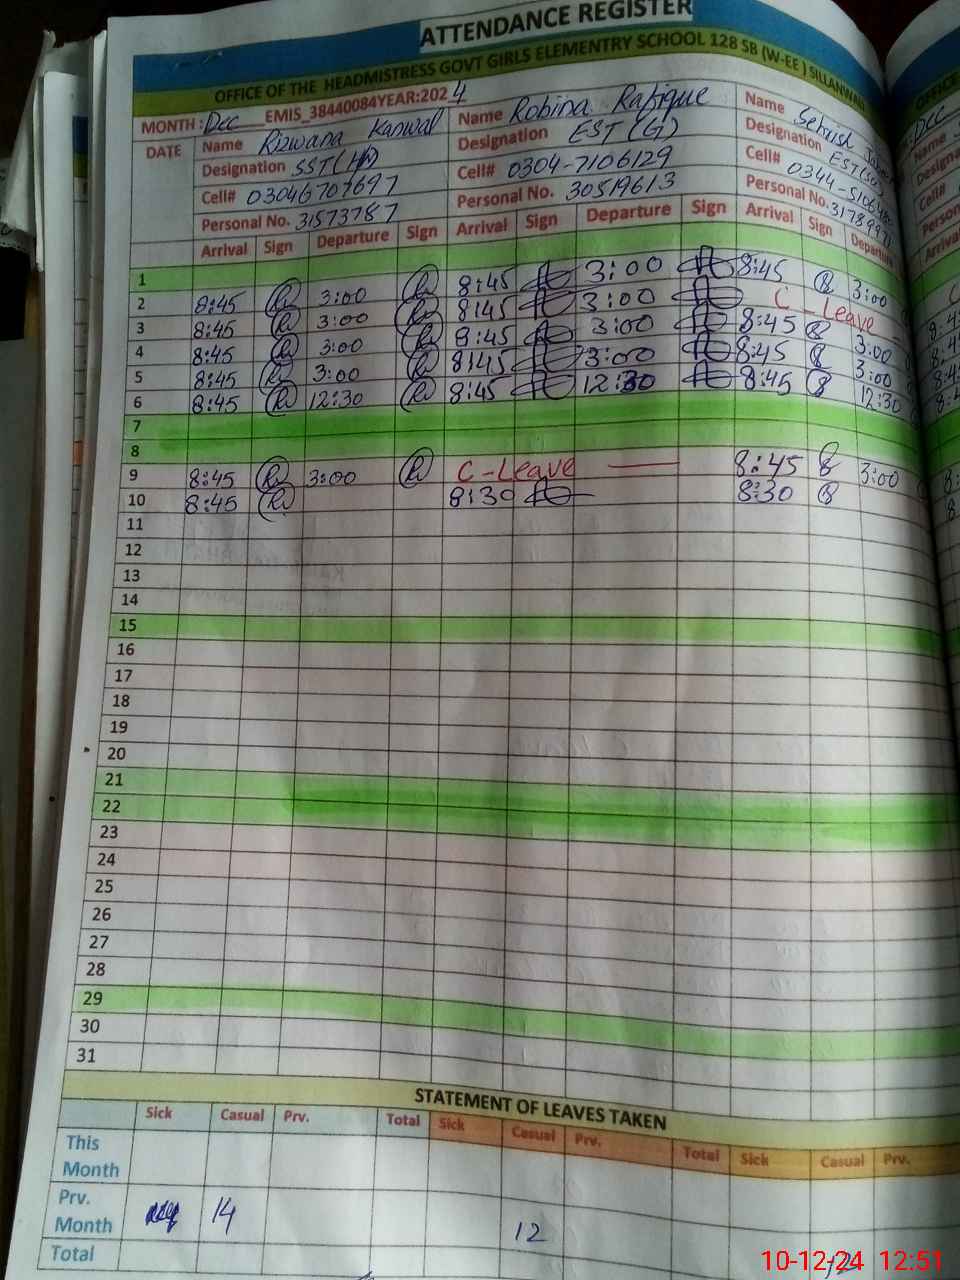 ATTENDANCE REGISTER
OFFICE OF THE HEADMISTRESS GOVT GIRLS ELEMENTRY SCHOOL 128 SB (W-EE ) SILLANWALI
MONTH : Dec EMIS_38440084YEAR:2024
DATE Name Rizwana Kanwal Name Robina Rafique Name Sehrish
Designation SST(HM) Designation EST (G) Designation
Cell# 03046707697 Cell# 0304-7106129 Cell#
Personal No. 31573787 Personal No. 30519613 Personal No.
Arrival Sign Departure Sign Arrival Sign Departure Sign Arrival Sign
1
2 8:45 3:00 8:45 3:00 8:45 3:00
3 8:45 3:00 8:45 3:00 C - Leave
4 8:45 3:00 8:45 3:00 8:45 3:00
5 8:45 3:00 8:45 3:00 8:45 3:00
6 8:45 12:30 8:45 12:30 8:45 12:30
7
8
9 8:45 3:00 C-Leave 8:45 3:00
10 8:45 8:30 8:30
11
12
13
14
15
16
17
18
19
20
21
22
23
24
25
26
27
28
29
30
31
STATEMENT OF LEAVES TAKEN
Sick Casual Prv. Total Sick Casual Prv. Total Sick Casual Prv.
This Month
Prv. Month 14 12
Total
10-12-24 12:51